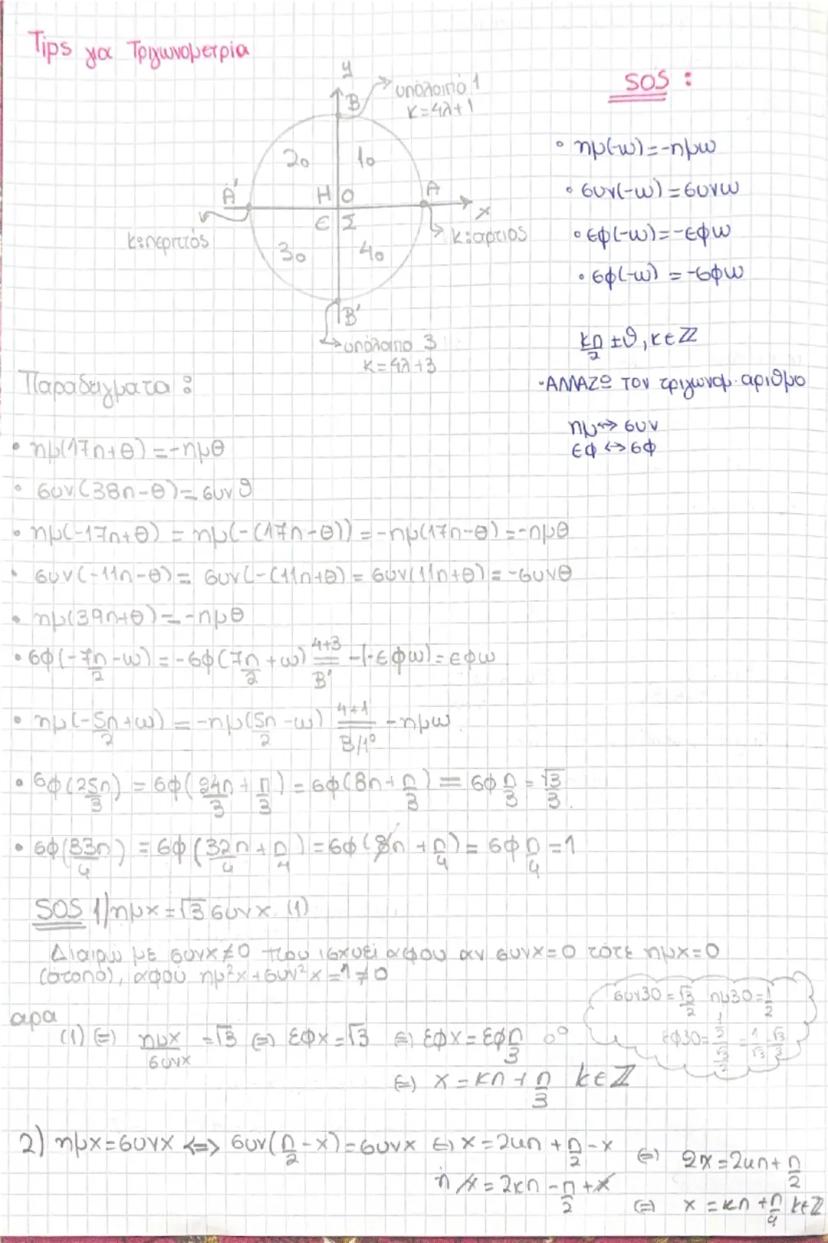 Tips για Τριγωνομετρία
SOS :
y
B
υπόλοιπο 1
κ=4λ+1
2ο 1ο
Α' Η Ο Α
x
Ε Σ
κ:περιττός
κ:άρτιος
3ο 4ο
Β'
υπόλοιπο 3
κ=4λ+3
• ημ(-ω)=-ημω
• συν(-ω)=συνω
• εφ(-ω)=-εφω
• σφ(-ω)=-σφω
κπ/2 ±θ, κ∈ℤ
·ΑΛΛΑΖΩ τον τριγωνομ. αριθμο
ημ↔συν
εφ↔σφ
Παραδείγματα :
• ημ(17π+θ)=-ημθ
• συν(38π-θ)=συνθ
• ημ(-17π+θ) = ημ(-(17π-θ))=-ημ(17π-θ)=-ημθ
• συν(-11π-θ)= συν(-(11π+θ)=συν(11π+θ)=-συνθ
• ημ(39π+θ)=-ημθ
• σφ(-7π/2-ω)=-σφ(7π/2+ω) 4+3/Β' = -(-εφω)=εφω
• ημ(-5π/2+ω)=-ημ(5π/2-ω) 4+1/Β/1ο = -ημω
• σφ(25π/3) = σφ(24π/3+π/3)=σφ(8π+π/3) = σφπ/3=√3/3
• σφ(33π/4) =σφ(32π/4+π/4)=σφ(8π+π/4)=σφπ/4=1
SOS 1) ημx=√3συνx (1)
Διαιρω με συνx≠0 που ισχυει αφου αν συνx=0 τότε ημx=0
(ατοπο), αφού ημ²x+συν²x=1≠0
συν30=√3/2 ημ30=1/2
εφ30=1/2/√3/2=1/√3=√3/3
αρα
(1) (=) ημx/συνx =√3 (=) εφx=√3 (=) εφx=εφπ/3
(=) x=κπ+π/3 k∈ℤ
2) ημx=συνx <=> συν(π/2-x)=συνx (=) x=2κπ+π/2-x (=) 2x=2κπ+π/2
ή x=2κπ-π/2+x (=) x=κπ+π/4 k∈ℤ